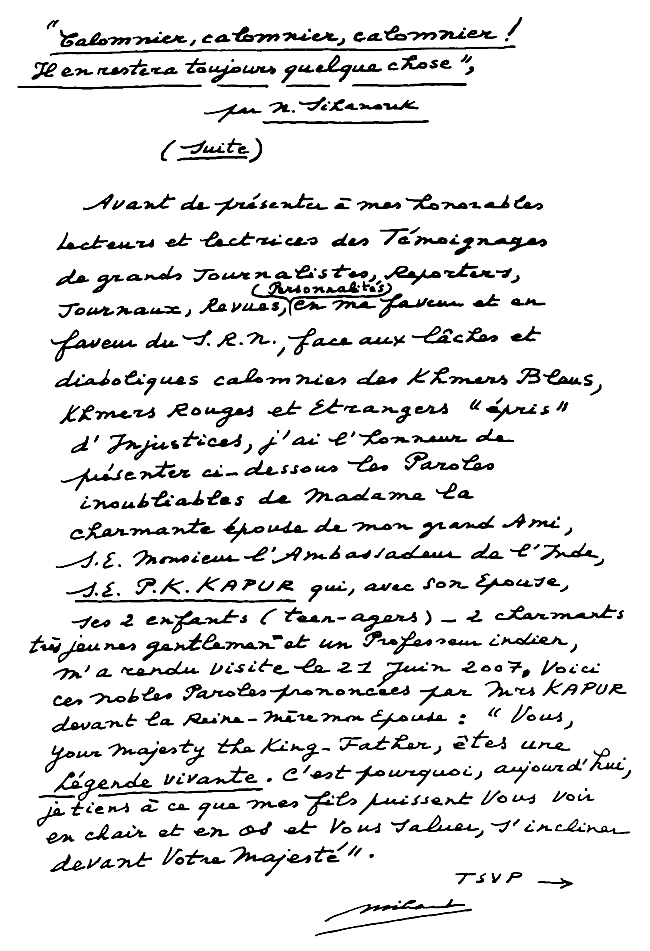 "Calomnier, calomnier, calomnier !
Il en restera toujours quelque chose",
par N. Sihanouk
(Suite)
Avant de présenter à mes honorables
Lecteurs et lectrices des Témoignages
de grands Journalistes, Reporters,
(Personnalités)
Journaux, Revues, en ma faveur et en
faveur du S.R.N., face aux lâches et
diaboliques calomnies des Khmers Bleus,
Khmers Rouges et Etrangers "épris"
d'Injustices, j'ai l'honneur de
présenter ci-dessous les Paroles
inoubliables de Madame la
charmante épouse de mon grand Ami,
S.E. Monsieur l'Ambassadeur de l'Inde,
S.E. P.K. KAPUR qui, avec son Epouse,
ses 2 enfants (teen-agers) - 2 charmants
très jeunes gentlemen - et un Professeur indien,
m'a rendu visite le 21 Juin 2007. Voici
ces nobles Paroles prononcées par Mrs KAPUR
devant la Reine-Mère mon Epouse : " Vous,
Your Majesty the King-Father, êtes une
Légende vivante. C'est pourquoi, aujourd'hui,
je tiens à ce que mes fils puissent Vous voir
en chair et en os et Vous saluer, s'incliner
devant Votre Majesté".
TSVP →